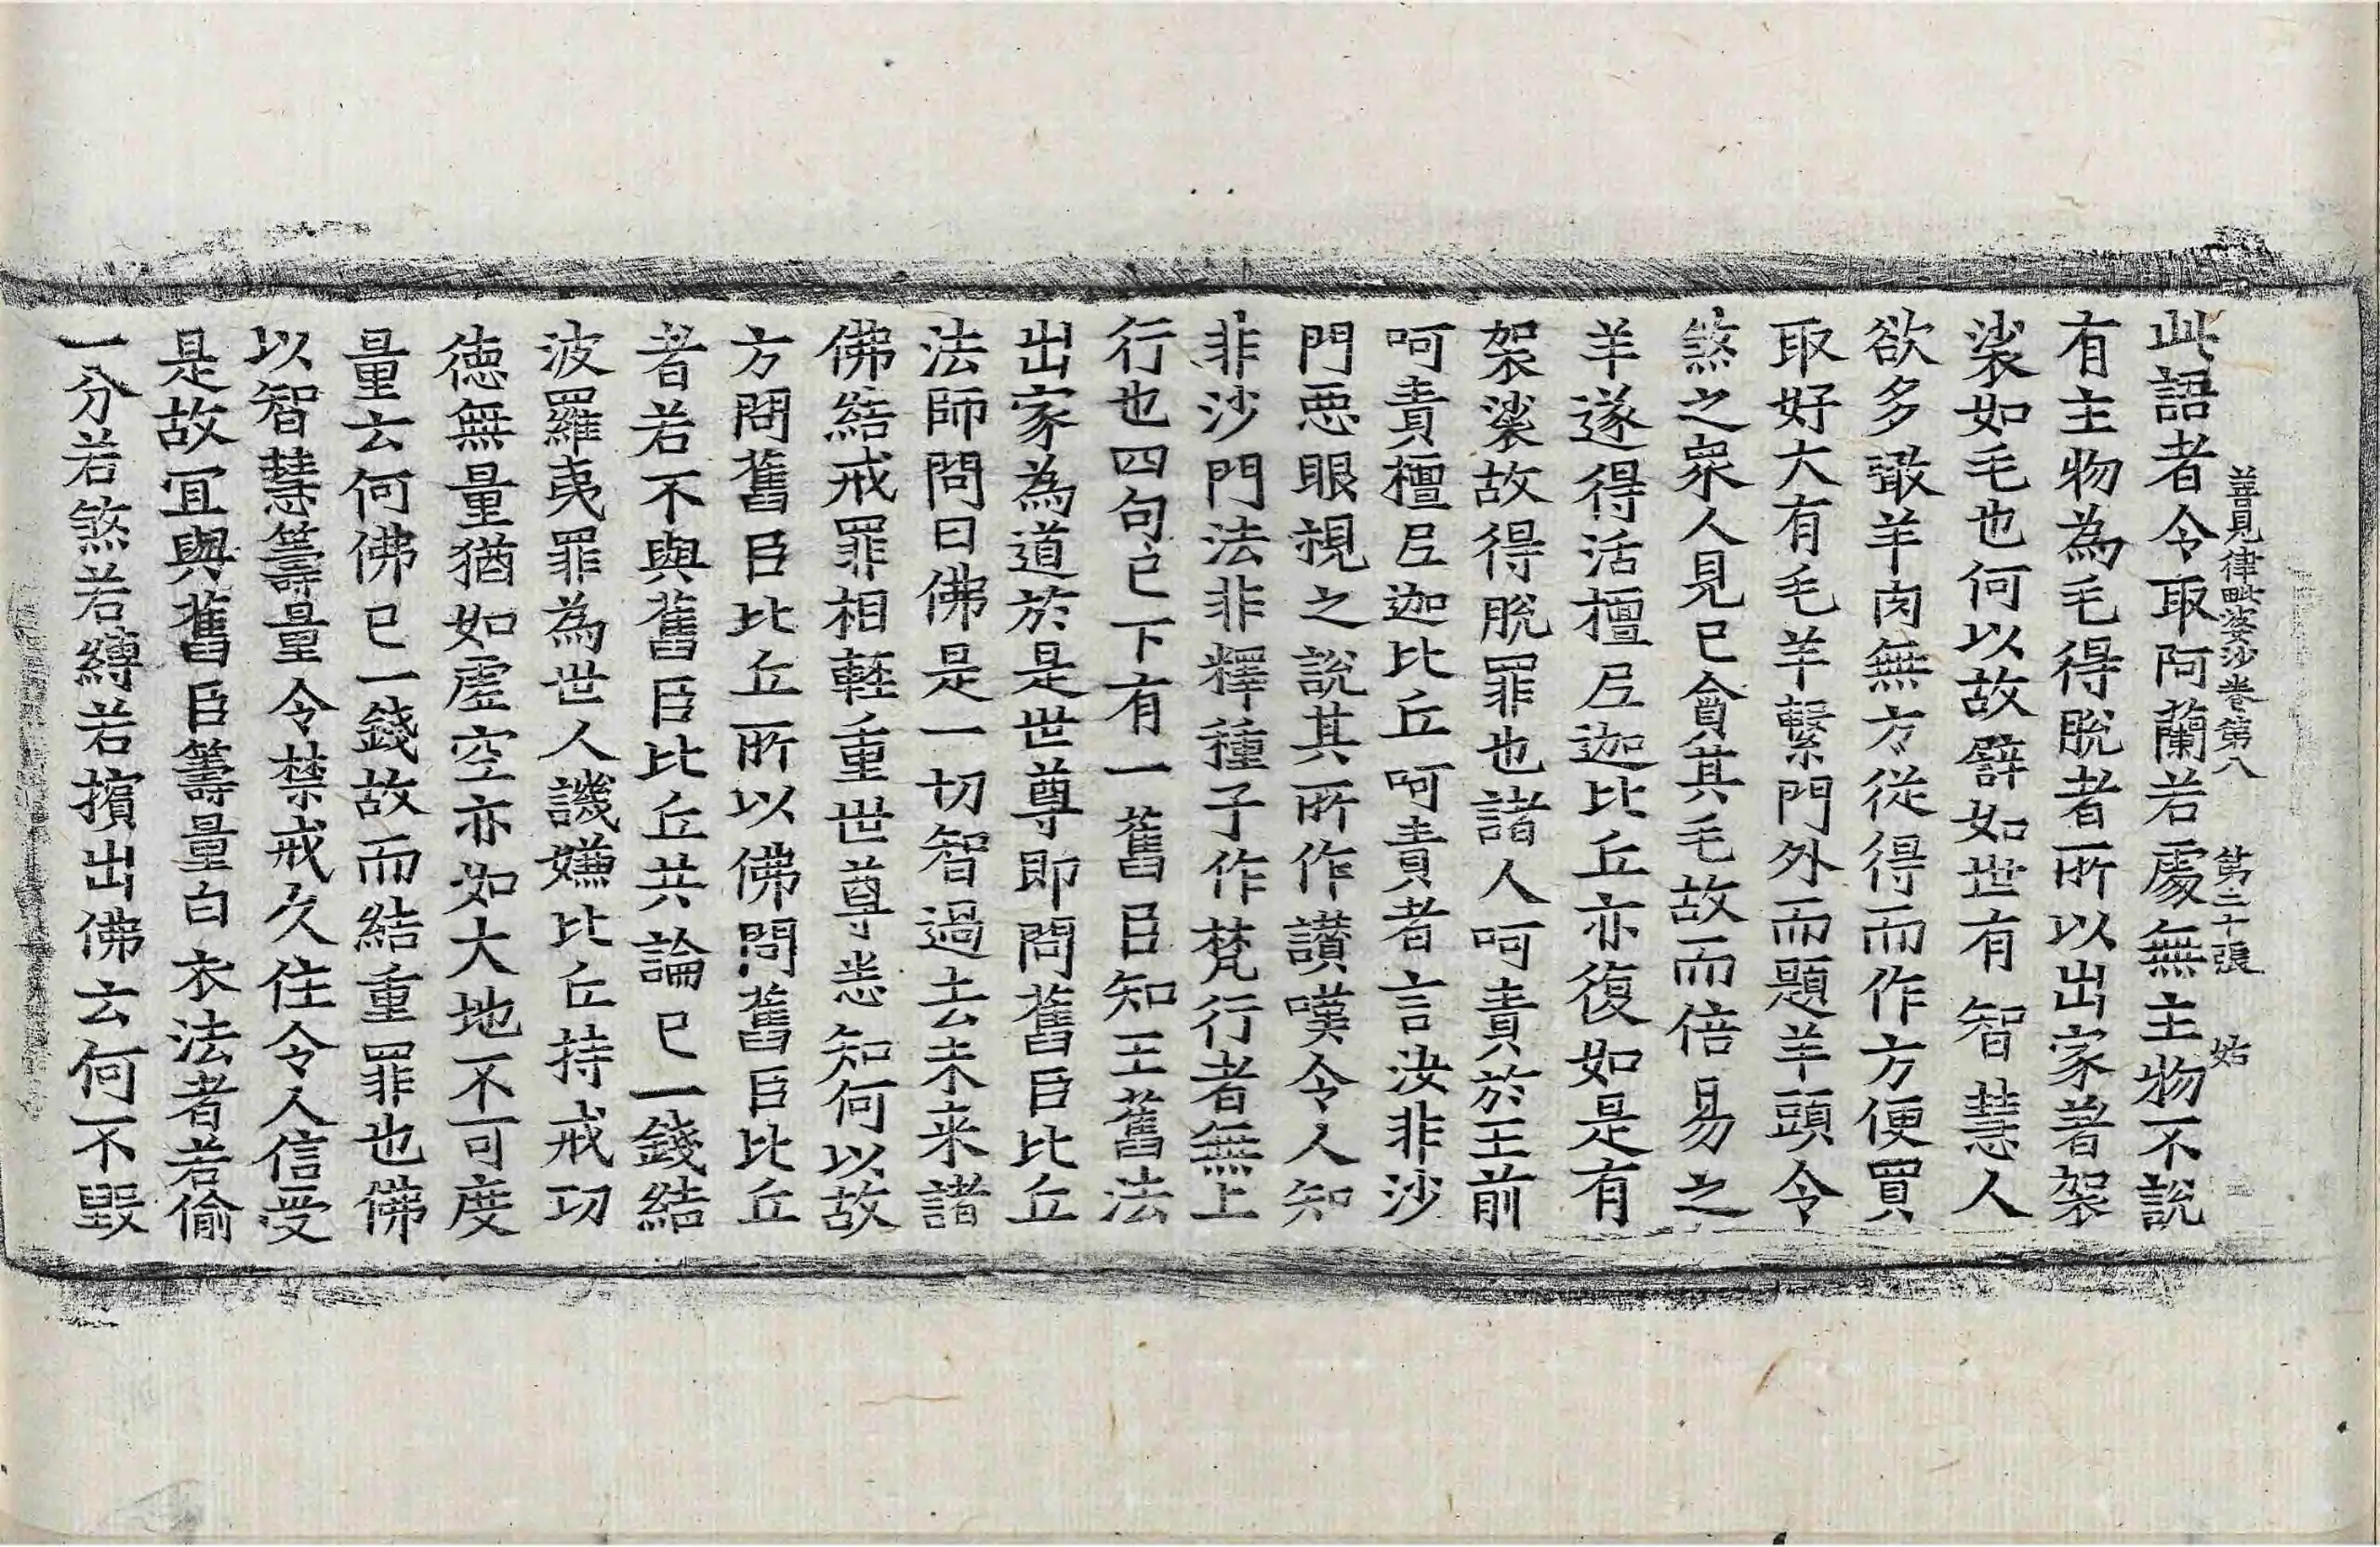 善見律毗婆沙卷第八 第二十張 始
此語者令取阿蘭若處無主物不說
有主物為毛得脫者所以出家著袈
裟如毛也何以故譬如世有智慧人
欲多噉羊肉無方從得而作方便買
取好大有毛羊繫門外而題羊頭令
煞之衆人見已貪其毛故而倍易之
羊遂得活檀尼迦比丘亦復如是有
袈裟故得脫罪也諸人呵責於王前
呵責檀尼迦比丘呵責者言汝非沙
門惡眼視之說其所作讃嘆令人知
非沙門法非釋種子作梵行者無上
行也四句已下有一舊臣知王舊法
出家為道於是世尊即問舊臣比丘
法師問曰佛是一切智過去未来諸
佛結戒罪相輕重世尊悉知何以故
方問舊臣比丘所以佛問舊臣比丘
者若不與舊臣比丘共論已一錢結
波羅夷罪為世人譏嫌比丘持戒功
德無量猶如虛空亦如大地不可度
量云何佛已一錢故而結重罪也佛
以智慧籌量令禁戒久住令人信受
是故冝與舊臣籌量白衣法者若偷
一分若煞若縛若擯出佛云何不毀